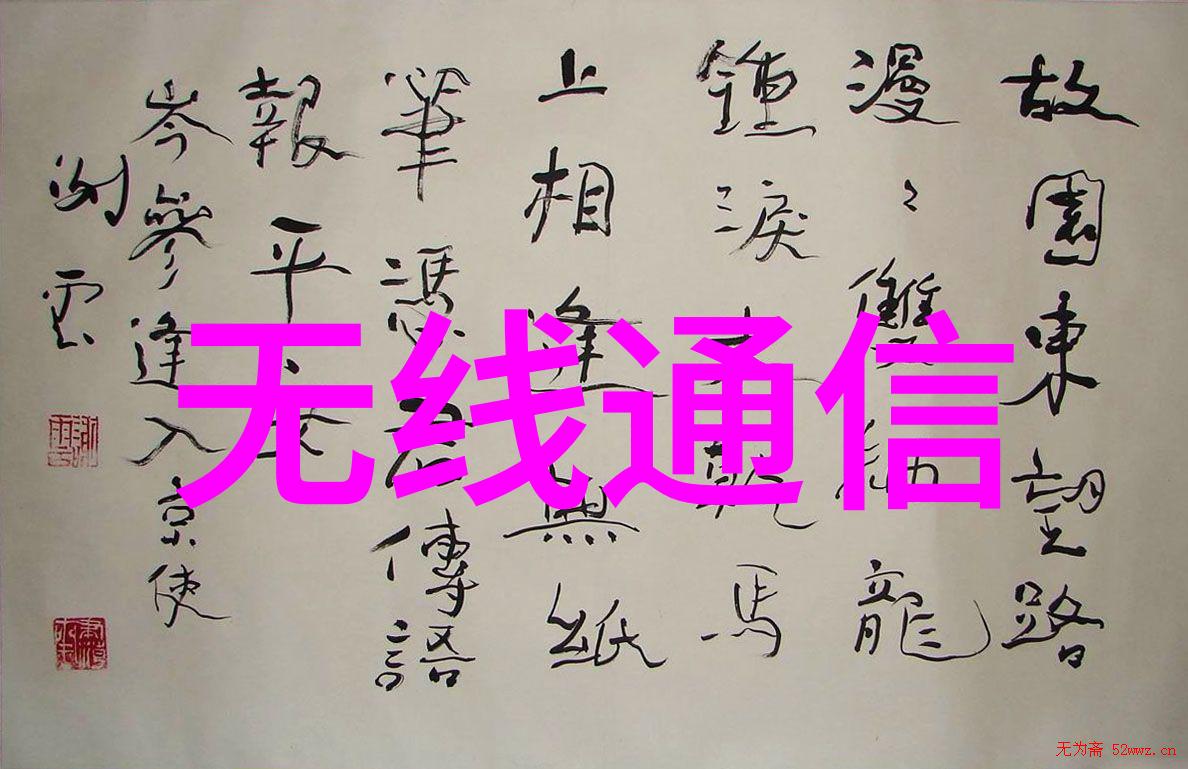 故園東望路
漫〻雙袖龍
鍾淚不乾馬
上相逢無紙
筆憑君傳語
報平安
岑參逢入京使
謝雲
无线通信
无为斋 52wwz.cn